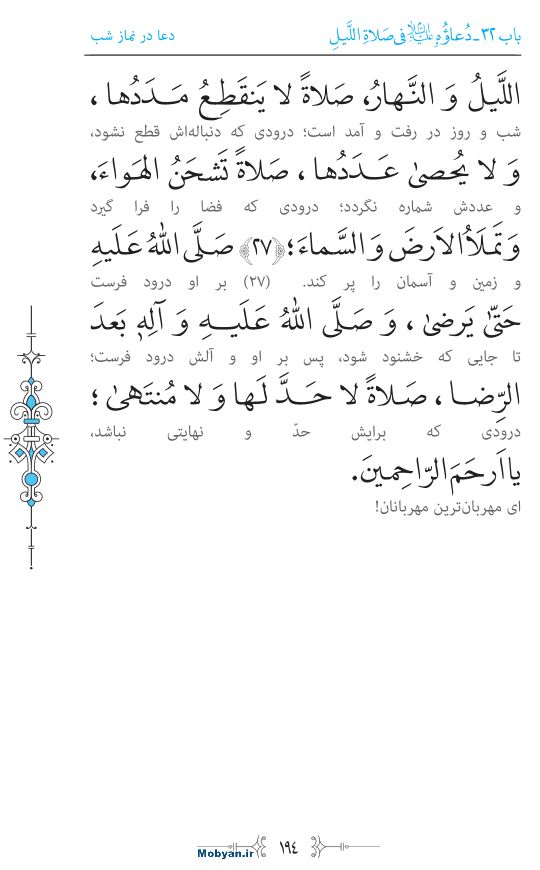 باب ۳۲ـ دُعاؤُهُ عَلَيْهِ السَّلامُ فى صَلاةِ اللَّيلِ
دعا در نماز شب
اللَّيلُ وَ النَّهارُ، صَلاةً لا يَنقَطِعُ مَدَدُها ،
شب و روز در رفت و آمد است؛ درودی که دنباله‌اش قطع نشود،
وَ لا يُحصىٰ عَدَدُها ، صَلاةً تَشحَنُ الهَواءَ،
و عددش شماره نگردد؛ درودی که فضا را فرا گیرد
وَ تَملَاُ الاَرضَ وَ السَّماءَ؛ ﴿۲۷﴾ صَلَّى اللهُ عَلَيهِ
و زمین و آسمان را پر کند. (۲۷) بر او درود فرست
حَتّىٰ يَرضىٰ ، وَ صَلَّى اللهُ عَلَيهِ وَ آلِهٖ بَعدَ
تا جایی که خشنود شود، پس بر او و آلش درود فرست؛
الرِّضا ، صَلاةً لا حَدَّ لَها وَ لا مُنتَهىٰ ؛
درودی که برایش حدّ و نهایتی نباشد،
يا اَرحَمَ الرّاحِمينَ.
ای مهربان‌ترین مهربانان!
۱۹٤
Mobyan.ir